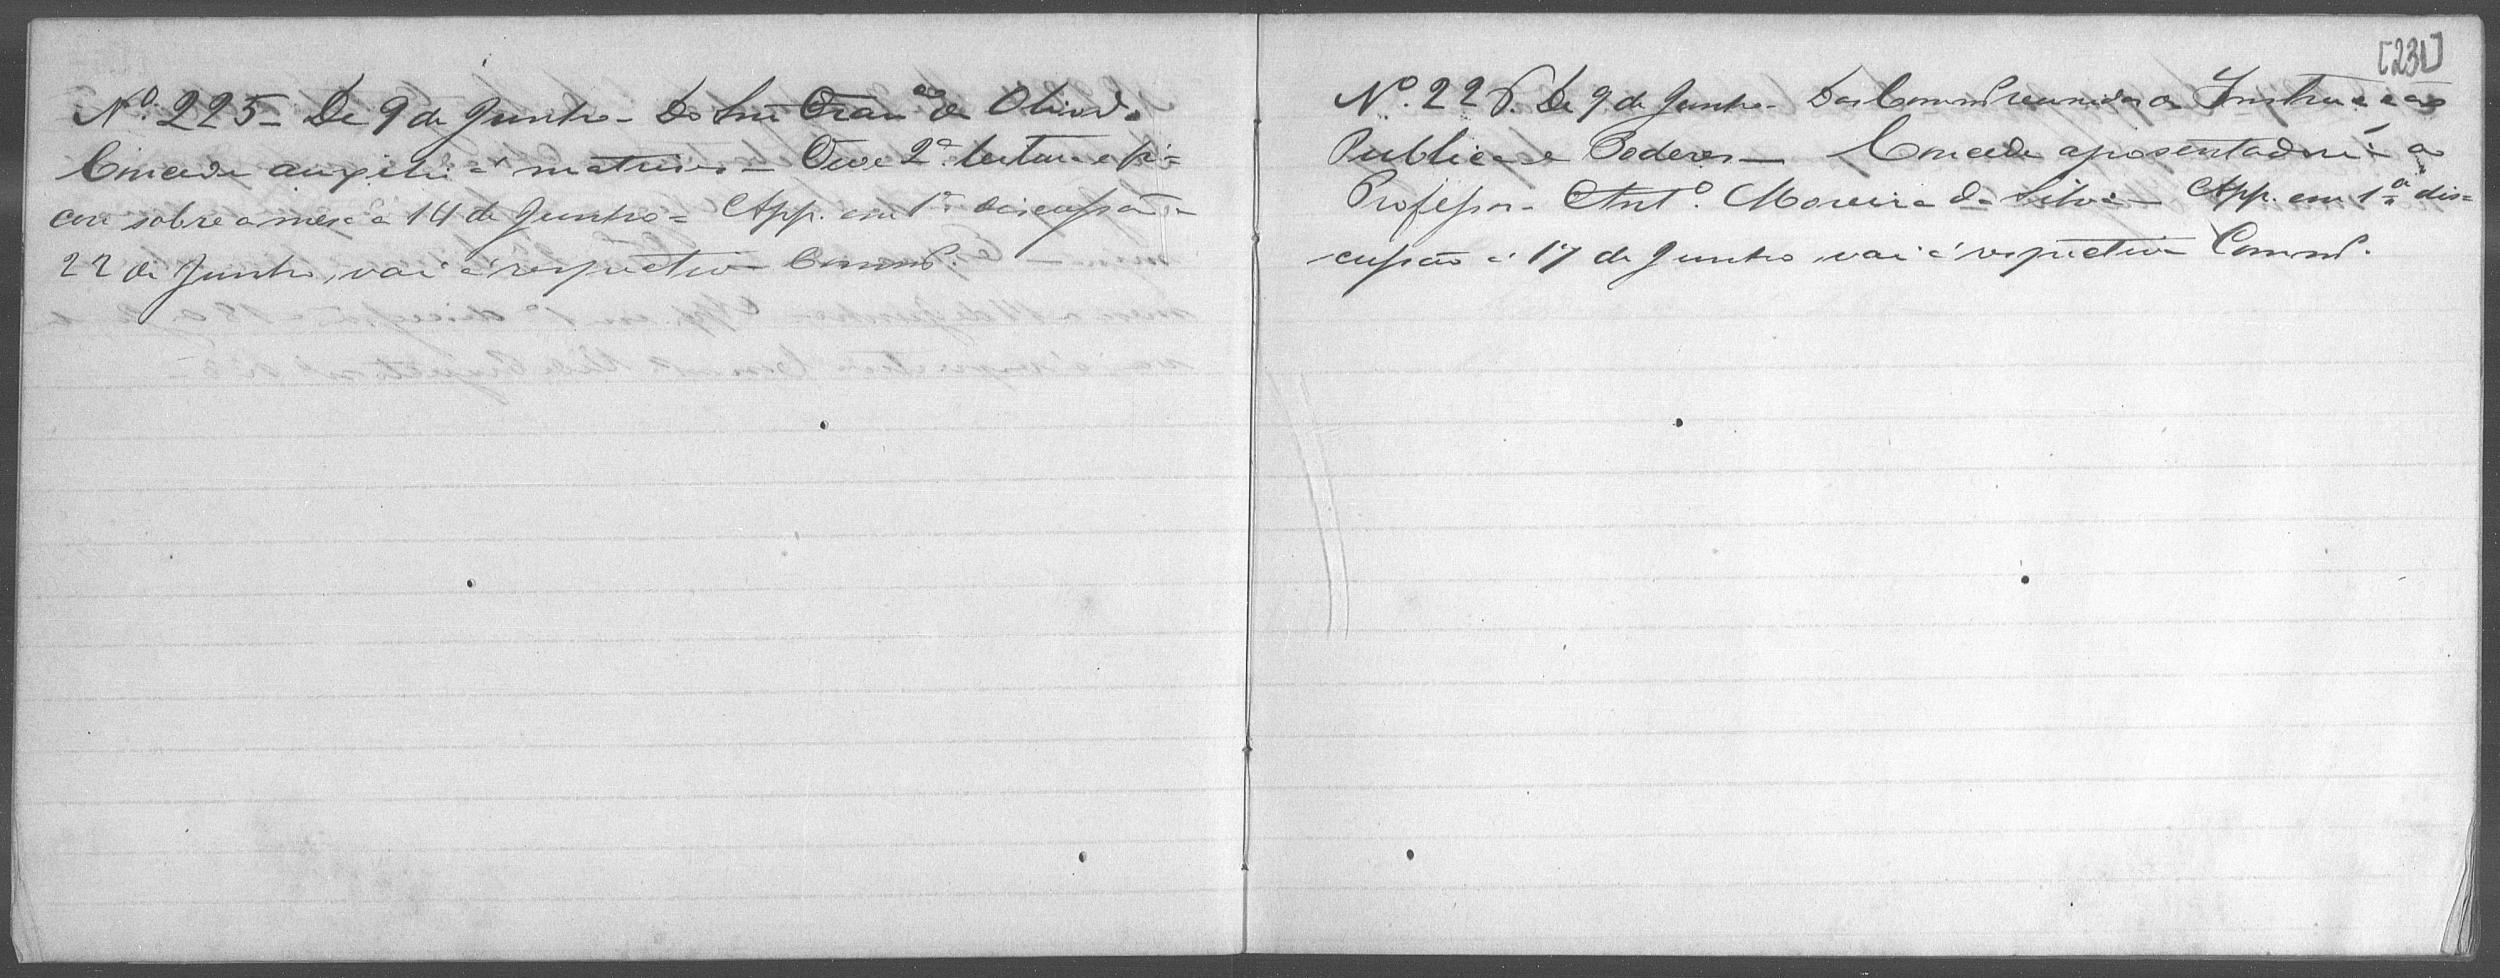 Nº. 225 – De 9 de Junho – Do Snr Fran.co de Olivrª.
Concede auxilio á matrizes – Teve 2ª leitura e fi=
cou sobre a mesa a 14 de Junho = App. em 1ª discussão a
22 de Junho, vai á respectiva Commº.
[231]
Nº. 226. De 9 de Junho – Das Commº reunidas de Instrucção
Publica e Poderes – Concede aposentadoria ao
Professor Antº. Moreira da Silva – App. em 1ª dis=
cussão á 17 de Junho vai á respectiva Commº.